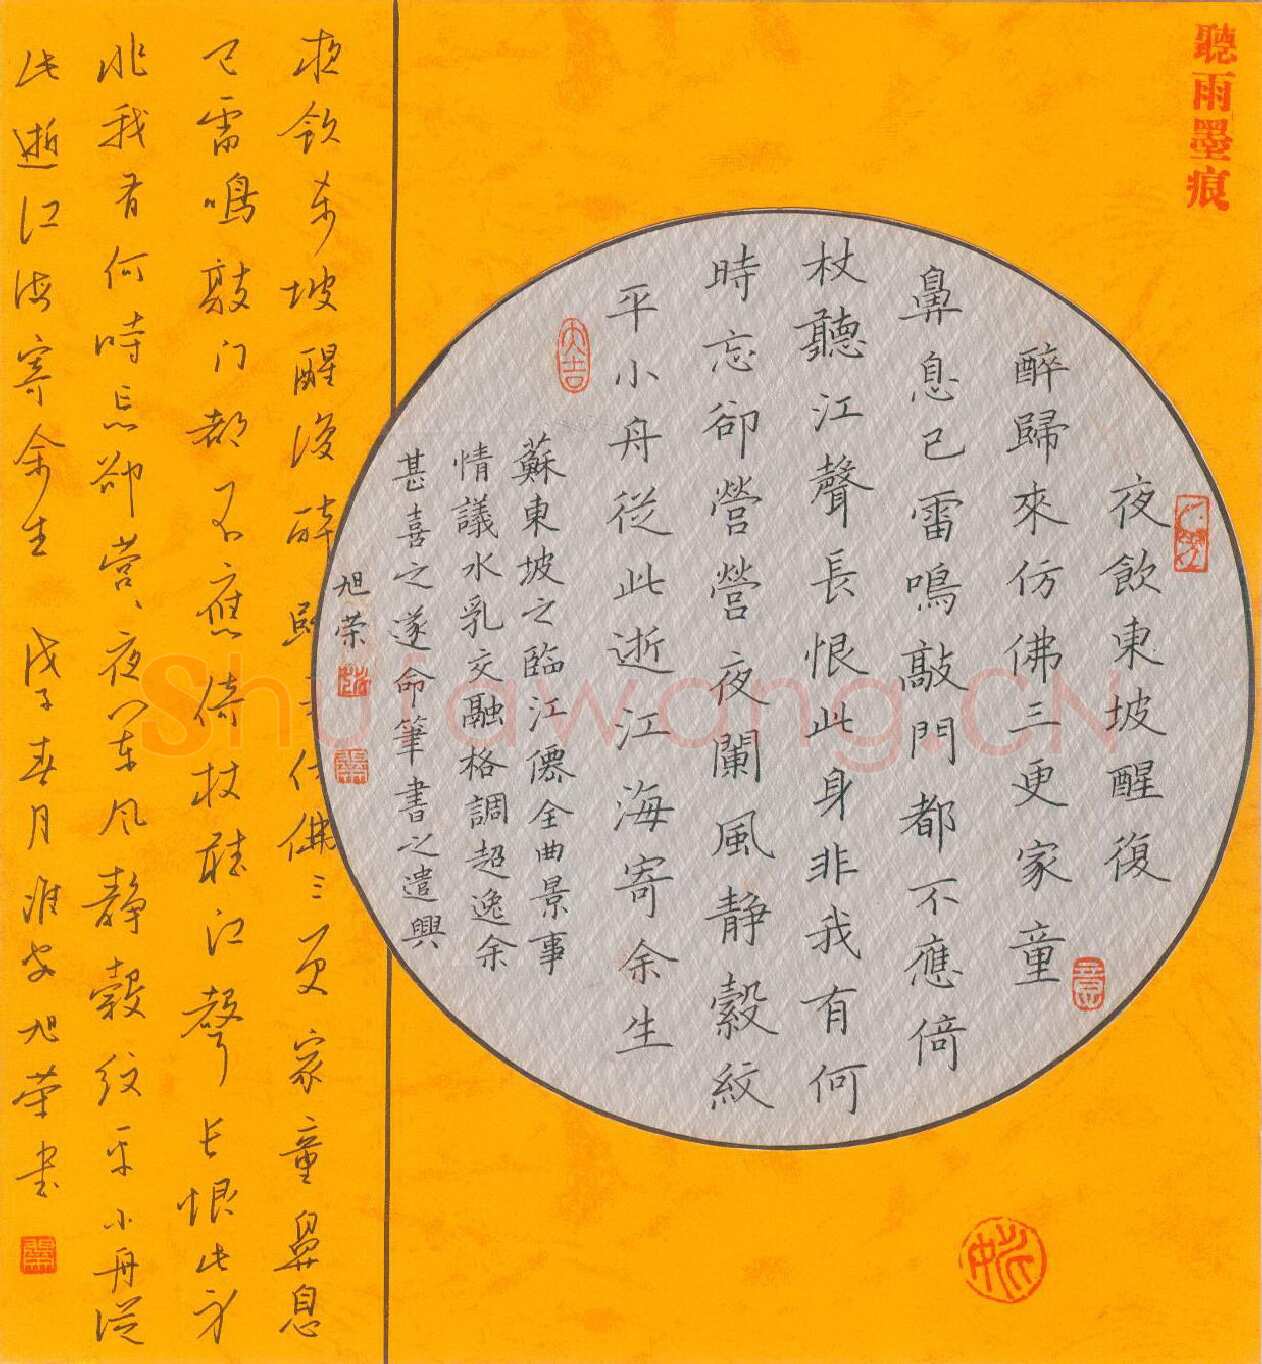 聽雨墨痕
夜飲東坡醒復
醉歸來仿佛三更家童
鼻息已雷鳴敲門都不應倚
杖聽江聲長恨此身非我有何
時忘卻營營夜闌風静縠紋
平小舟從此逝江海寄余生
大吉
蘇東坡之臨江僊全曲景事
情議水乳交融格調超逸余
甚喜之遂命筆書之遣興
旭荣
夜飲東坡醒復醉歸来仿佛三更家童鼻息
已雷鳴敲门都不應倚杖聴江聲长恨此身
非我有何時忘卻营、夜闌风静縠纹平小舟從
此逝江海寄余生 戊子春月淮安旭荣书
Shufawang.CN